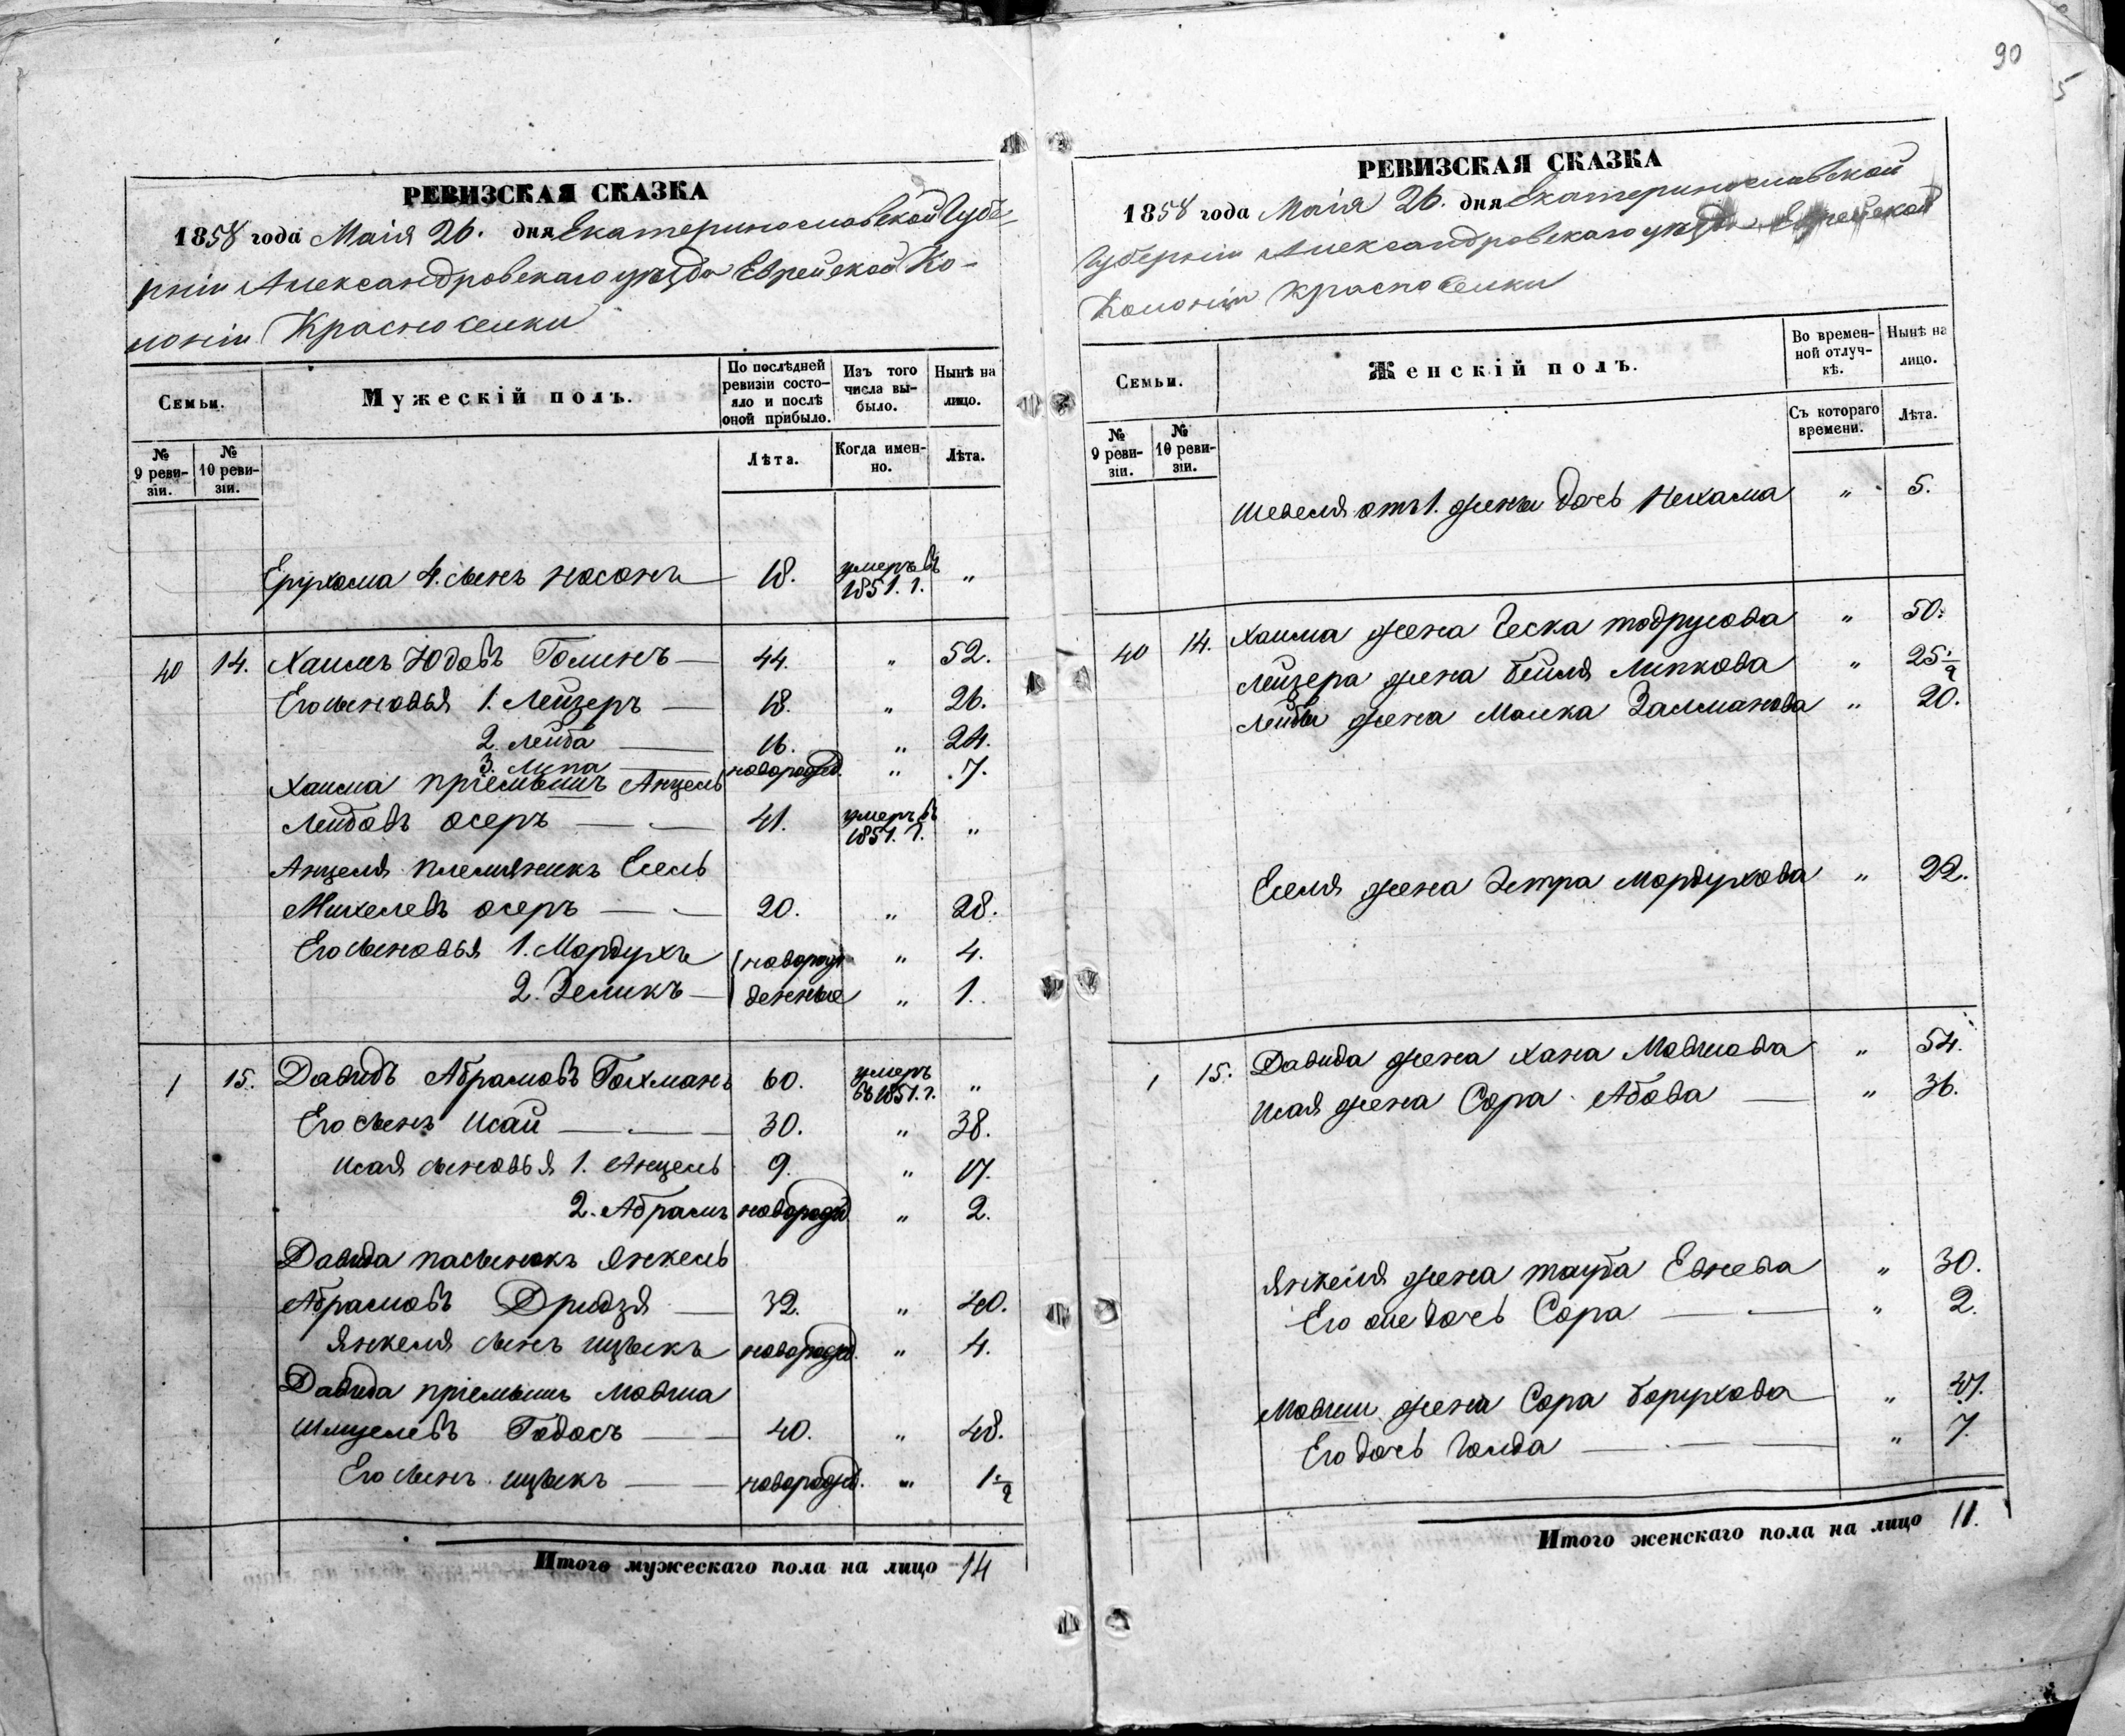 90
5
РЕВИЗСКАЯ СКАЗКА
1858 года Маія 26. дня Екатеринославской Губе-
рніи Александровскаго уѣзда Еврейской Ко-
лоніи Красноселки
Семьи.
Мужескій полъ.
По послѣдней ревизіи состо-яло и послѣ оной прибыло.
Изъ того числа вы-было.
Нынѣ на лицо.
№ 9 реви-зіи.
№ 10 реви-зіи.
Лѣта.
Когда имен-но.
Лѣта.
Ерухома 4. сынъ Носонъ — 18. умеръ въ 1851. г. „
40 14. Хаимъ Юдовъ Голинъ — 44. „ 52.
Его сыновья 1. Лейзеръ — 18. „ 26.
2. Лейба — 16. „ 24.
3. Липа — новорожд. „ 7.
Хаима пріемышъ Анцель
Лейбовъ Осеръ — 41. умеръ въ 1851. г. „
Анцеля племяникъ Есель
Михелевъ Осеръ — 20. „ 28.
Его сыновья 1. Мордухъ новорож „ 4.
2. Зеликъ — денные „ 1.
1 15. Давидъ Абрамовъ Гохманъ 60. умеръ въ 1851. г. „
Его сынъ Исай — 30. „ 38.
Исая сыновья 1. Анцель 9. „ 17.
2. Абрамъ новорожд „ 2.
Давида пасынокъ Янкель
Абрамовъ Дридзя — 32. „ 40.
Янкеля сынъ Ицыкъ новорожд. „ 4.
Давида пріемышъ Мовша
Шмуелевъ Годосъ — 40. „ 48.
Его сынъ Ицыкъ — новорожд. „ 1 1/2
Итого мужескаго пола на лицо 14
РЕВИЗСКАЯ СКАЗКА
1858 года Маія 26. дня Екатеринославской
Губерніи Александровскаго уѣзда Еврейской
Колоніи Красноселки
Семьи.
Женскій полъ.
Во времен-ной отлуч-кѣ.
Нынѣ на лицо.
№ 9 реви-зіи.
№ 10 реви-зіи.
Съ котораго времени.
Лѣта.
Шевеля отъ 1. жены дочь Нехама „ 5.
40 14. Хаима жена Ческа Тодрусова „ 50.
Лейзера жена Бейля Липкова „ 25 1/2
Лейбы жена Малка Залманова „ 20.
Еселя жена Эстра Мордухова „ 22.
1 15. Давида жена Хана Мовшова „ 54.
Исая жена Сора Абова — „ 36.
Янкеля жена Тауба Евнева „ 30.
Его же дочь Сора — „ 2.
Мовши жена Сора Борухова „ 47.
Его дочь Голда — „ 7.
Итого женскаго пола на лицо 11.